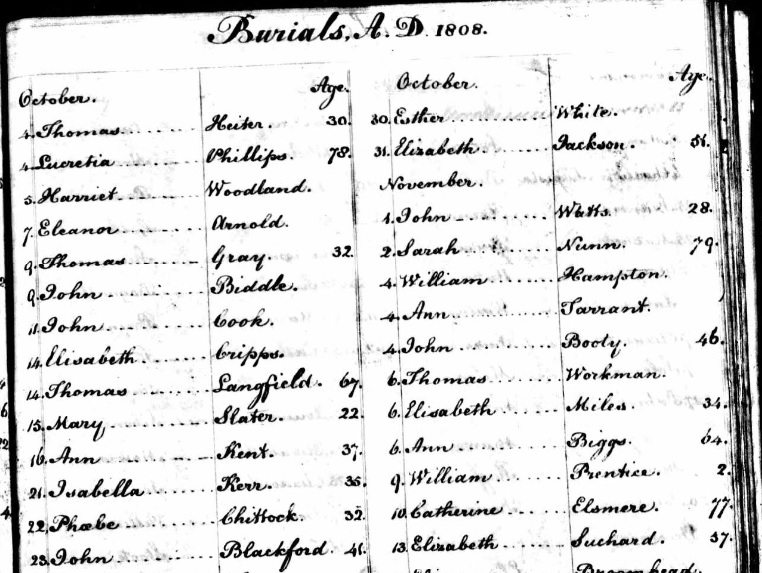 Burials, A. D. 1808.
October. Age.
4. Thomas Heiter. 30.
4. Lucretia Phillips. 78.
5. Harriet Woodland.
7. Eleanor Arnold.
9. Thomas Gray. 32.
9. John Biddle.
11. John Cook.
14. Elisabeth Cripps.
14. Thomas Langfield. 67.
15. Mary Slater. 22.
16. Ann Kent. 37.
21. Isabella Kerr. 35.
22. Phœbe Chittock. 32.
23. John Blackford. 41.
October. Age.
30. Esther White.
31. Elizabeth Jackson. 51.
November.
1. John Watts. 28.
2. Sarah Nunn. 79.
4. William Hampton.
4. Ann Tarrant.
4. John Booty. 46.
6. Thomas Workman.
6. Elisabeth Miles. 34.
6. Ann Biggs. 64.
9. William Prentice. 2.
10. Catherine Elsmere. 77.
13. Elizabeth Suchard. 37.
Broomhead.